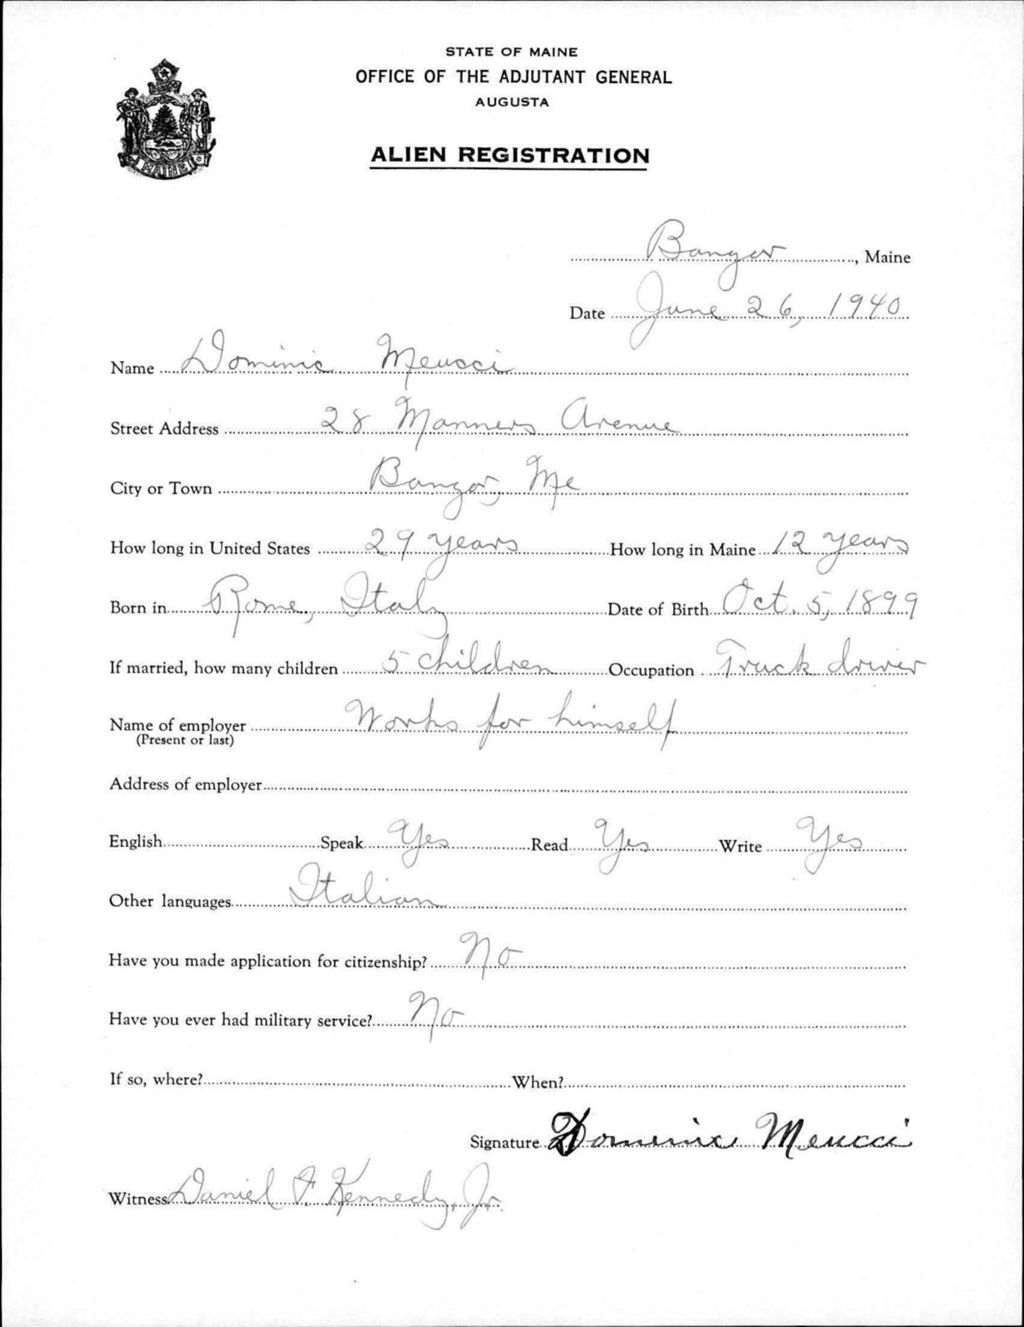 STATE OF MAINE
OFFICE OF THE ADJUTANT GENERAL
AUGUSTA
ALIEN REGISTRATION
MAINE
Bangor, Maine
Date June 26, 1940
Name Dominic Meucci
Street Address 28 Manners Avenue
City or Town Bangor, Me
How long in United States 29 years How long in Maine 12 years
Born in Rome, Italy Date of Birth Oct. 5, 1899
If married, how many children 5 children Occupation Truck driver
Name of employer Works for himself
(Present or last)
Address of employer
English Speak Yes Read Yes Write Yes
Other languages Italian
Have you made application for citizenship? No
Have you ever had military service? No
If so, where? When?
Signature Domenic Meucci
Witness Daniel F. Kennedy, Jr.